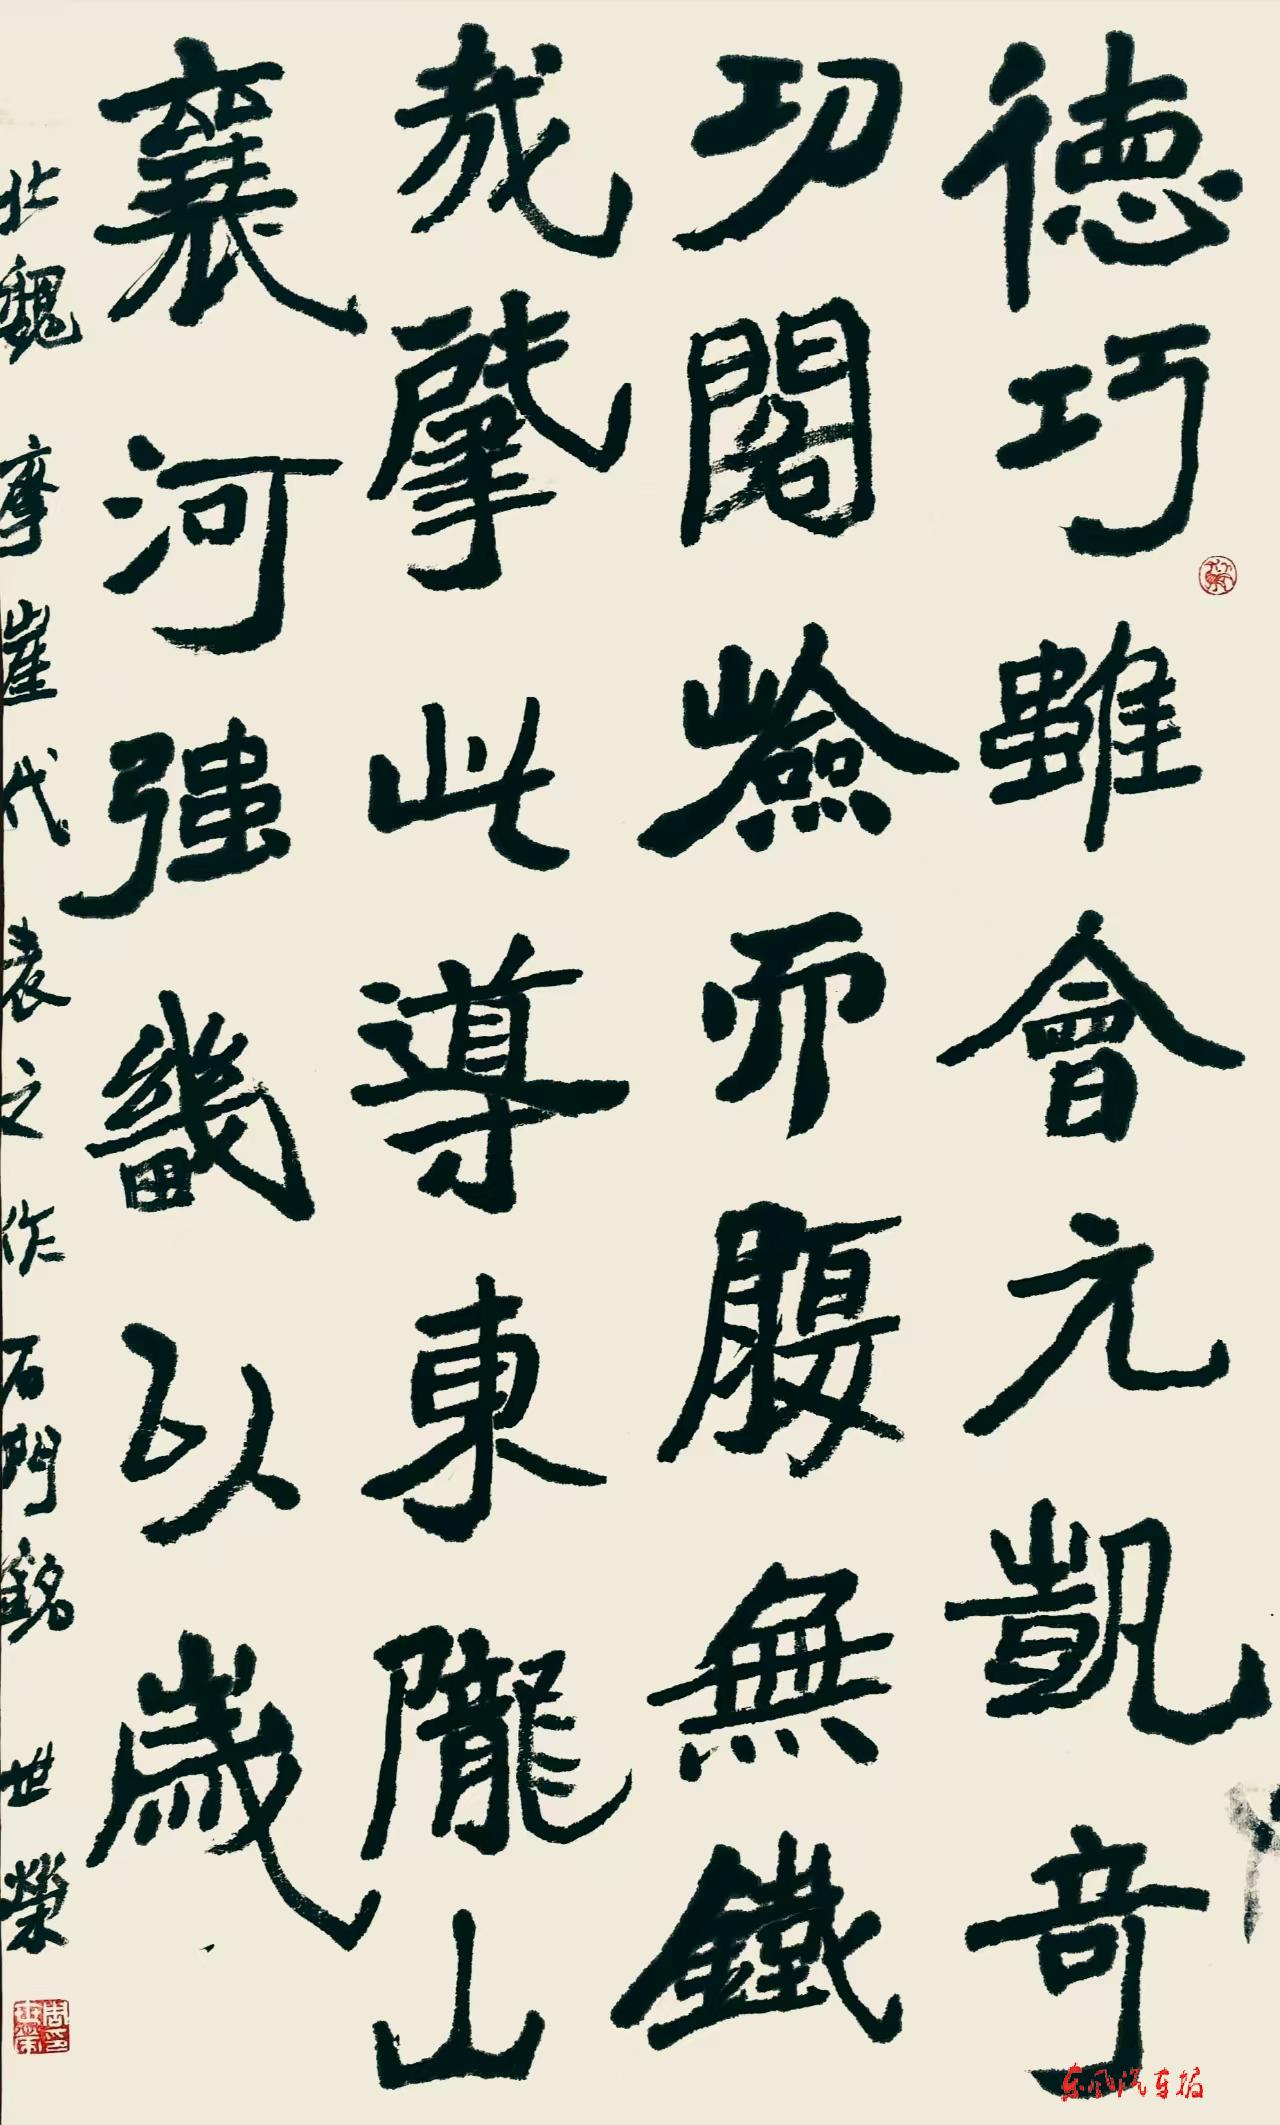 德巧雖會元凱奇
功閣嶮而腰無鐵
哉肇此導東隴山
襄河强畿以歲
北魏摩崖代表之作石門銘世榮
东风汽车报